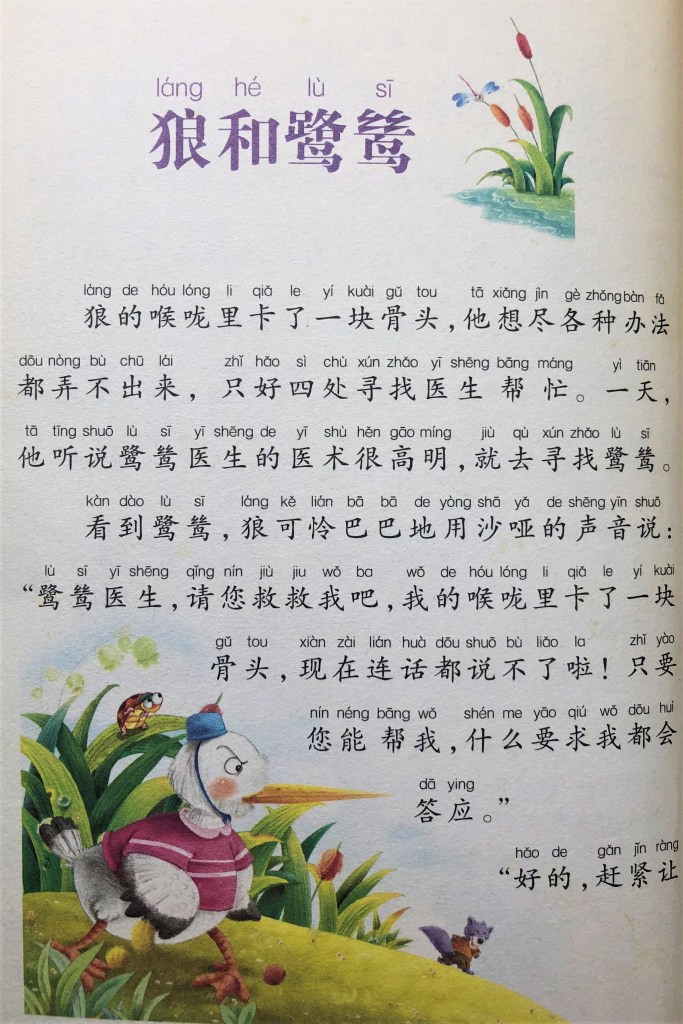 láng hé lù sī
狼和鹭鸶
láng de hóu lóng li qiǎ le yí kuài gǔ tou tā xiǎng jìn gè zhǒng bàn fǎ
狼的喉咙里卡了一块骨头,他想尽各种办法
dōu nòng bù chū lái zhǐ hǎo sì chù xún zhǎo yī shēng bāng máng yì tiān
都弄不出来,只好四处寻找医生帮忙。一天,
tā tīng shuō lù sī yī shēng de yī shù hěn gāo míng jiù qù xún zhǎo lù sī
他听说鹭鸶医生的医术很高明,就去寻找鹭鸶。
kàn dào lù sī láng kě lián bā bā de yòng shā yǎ de shēng yīn shuō
看到鹭鸶,狼可怜巴巴地用沙哑的声音说:
lù sī yī shēng qǐng nín jiù jiu wǒ ba wǒ de hóu lóng li qiǎ le yí kuài
“鹭鸶医生,请您救救我吧,我的喉咙里卡了一块
gǔ tou xiàn zài lián huà dōu shuō bù liǎo la zhǐ yào
骨头,现在连话都说不了啦!只要
nín néng bāng wǒ shén me yāo qiú wǒ dōu huì
您能帮我,什么要求我都会
dā ying
答应。”
hǎo de gǎn jǐn ràng
“好的,赶紧让